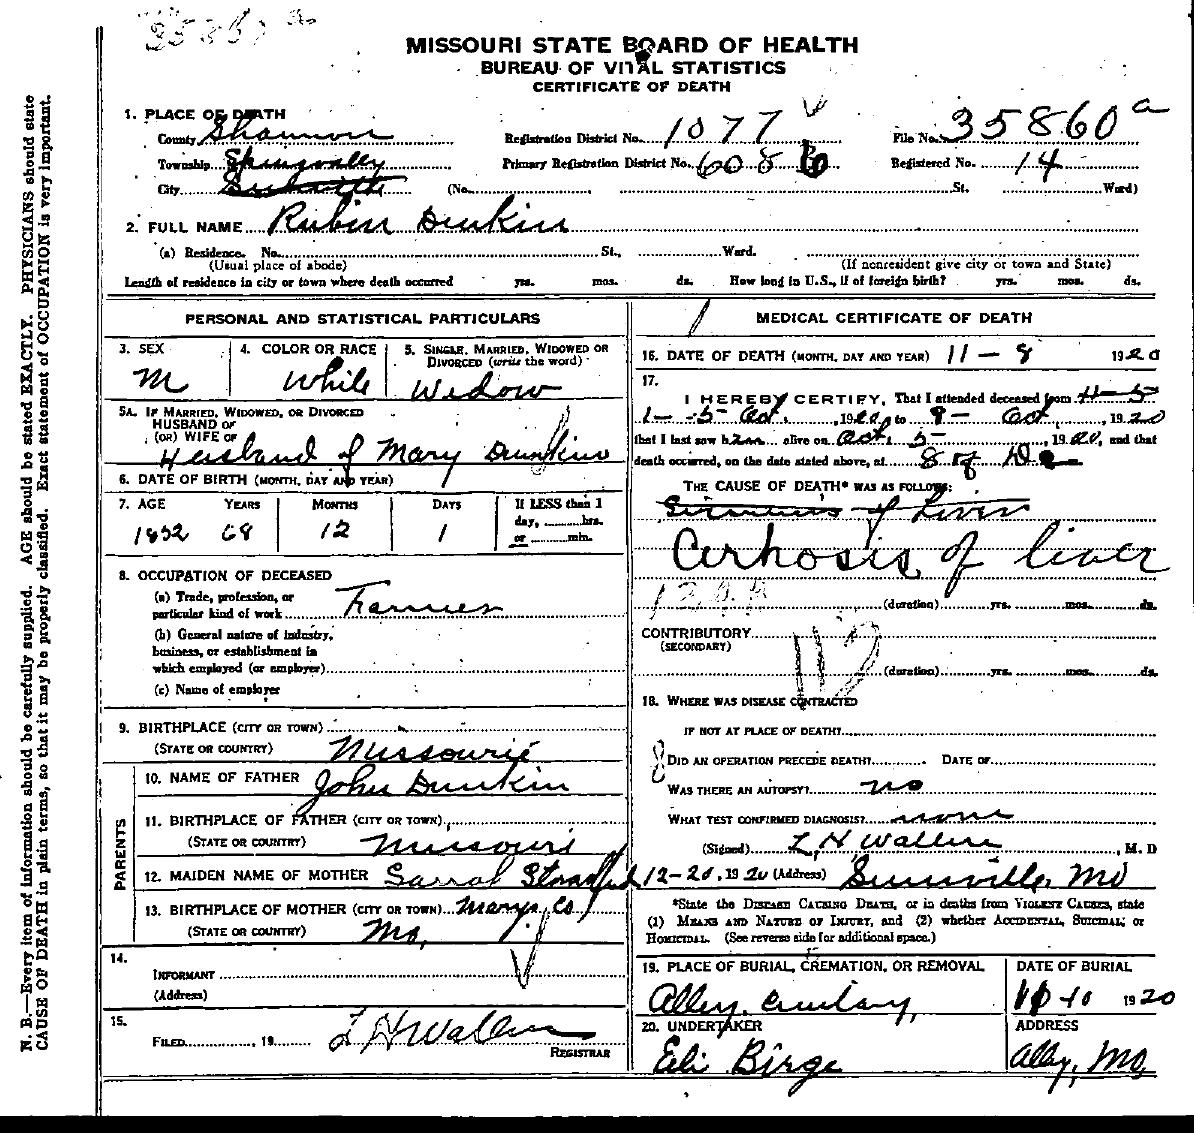 MISSOURI STATE BOARD OF HEALTH
BUREAU OF VITAL STATISTICS
CERTIFICATE OF DEATH
1. PLACE OF DEATH
County Shannon Registration District No. 1077 File No. 35860 a
Township Springvalley Primary Registration District No. 608 Registered No. 14
City (No. St. Ward)
2. FULL NAME Rubin Dunkin
(a) Residence. No. St., Ward.
(Usual place of abode) (If nonresident give city or town and State)
Length of residence in city or town where death occurred yrs. mos. ds. How long in U.S., if of foreign birth? yrs. mos. ds.
PERSONAL AND STATISTICAL PARTICULARS
3. SEX 4. COLOR OR RACE 5. SINGLE, MARRIED, WIDOWED OR
DIVORCED (write the word)
M While Widow
5A. IF MARRIED, WIDOWED, OR DIVORCED
HUSBAND OF
(OR) WIFE OF
Husband of Mary Dunkin
6. DATE OF BIRTH (MONTH, DAY AND YEAR)
7. AGE YEARS MONTHS DAYS If LESS than 1
day, hrs.
or min.
1852 68 12 1
8. OCCUPATION OF DECEASED
(a) Trade, profession, or
particular kind of work Farmer
(b) General nature of industry,
business, or establishment in
which employed (or employer)
(c) Name of employer
9. BIRTHPLACE (CITY OR TOWN)
(STATE OR COUNTRY) Missourie
PARENTS
10. NAME OF FATHER John Dunkin
11. BIRTHPLACE OF FATHER (CITY OR TOWN)
(STATE OR COUNTRY) Missouri
12. MAIDEN NAME OF MOTHER Sarrah
13. BIRTHPLACE OF MOTHER (CITY OR TOWN) Marys Co
(STATE OR COUNTRY) Mo,
14.
INFORMANT
(Address)
15.
FILED , 19 L H Wallen
REGISTRAR
MEDICAL CERTIFICATE OF DEATH
16. DATE OF DEATH (MONTH, DAY AND YEAR) 11 - 8 1920
17.
I HEREBY CERTIFY, That I attended deceased from
1 - 5 Oct, 1920 to 8 - Oct, 1920
that I last saw him alive on Oct, 5, 1920, and that
death occurred, on the date stated above, at 8
THE CAUSE OF DEATH* WAS AS FOLLOWS:
of Liver
Cirhosis of liver
(duration) yrs. mos. ds.
CONTRIBUTORY
(SECONDARY)
112
(duration) yrs. mos. ds.
18. WHERE WAS DISEASE CONTRACTED
IF NOT AT PLACE OF DEATH?
DID AN OPERATION PRECEDE DEATH? DATE OF
WAS THERE AN AUTOPSY? no
WHAT TEST CONFIRMED DIAGNOSIS? none
(Signed) L H Wallen, M. D
12-20, 1920 (Address) Mo
*State the DISEASE CAUSING DEATH, or in deaths from VIOLENT CAUSES, state
(1) MEANS AND NATURE OF INJURY, and (2) whether ACCIDENTAL, SUICIDAL, or
HOMICIDAL. (See reverse side for additional space.)
19. PLACE OF BURIAL, CREMATION, OR REMOVAL DATE OF BURIAL
Alley, 11-10 1920
20. UNDERTAKER ADDRESS
Eli Birge Alley, Mo,
N. B.—Every item of information should be carefully supplied. AGE should be stated EXACTLY. PHYSICIANS should state
CAUSE OF DEATH in plain terms, so that it may be properly classified. Exact statement of OCCUPATION is very important.